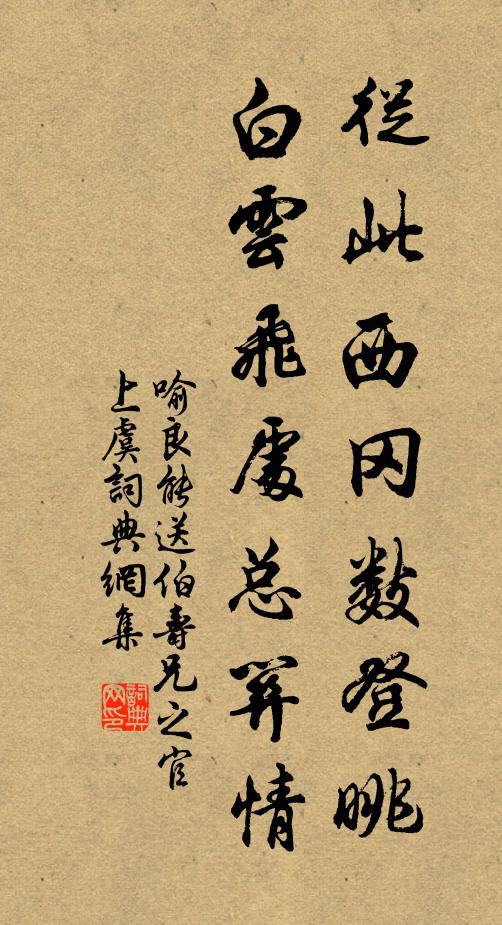 從此西冈數登眺
白雲飛處总關情
喻良能送伯壽兄之官
上虞詞典網集
詞典
网印